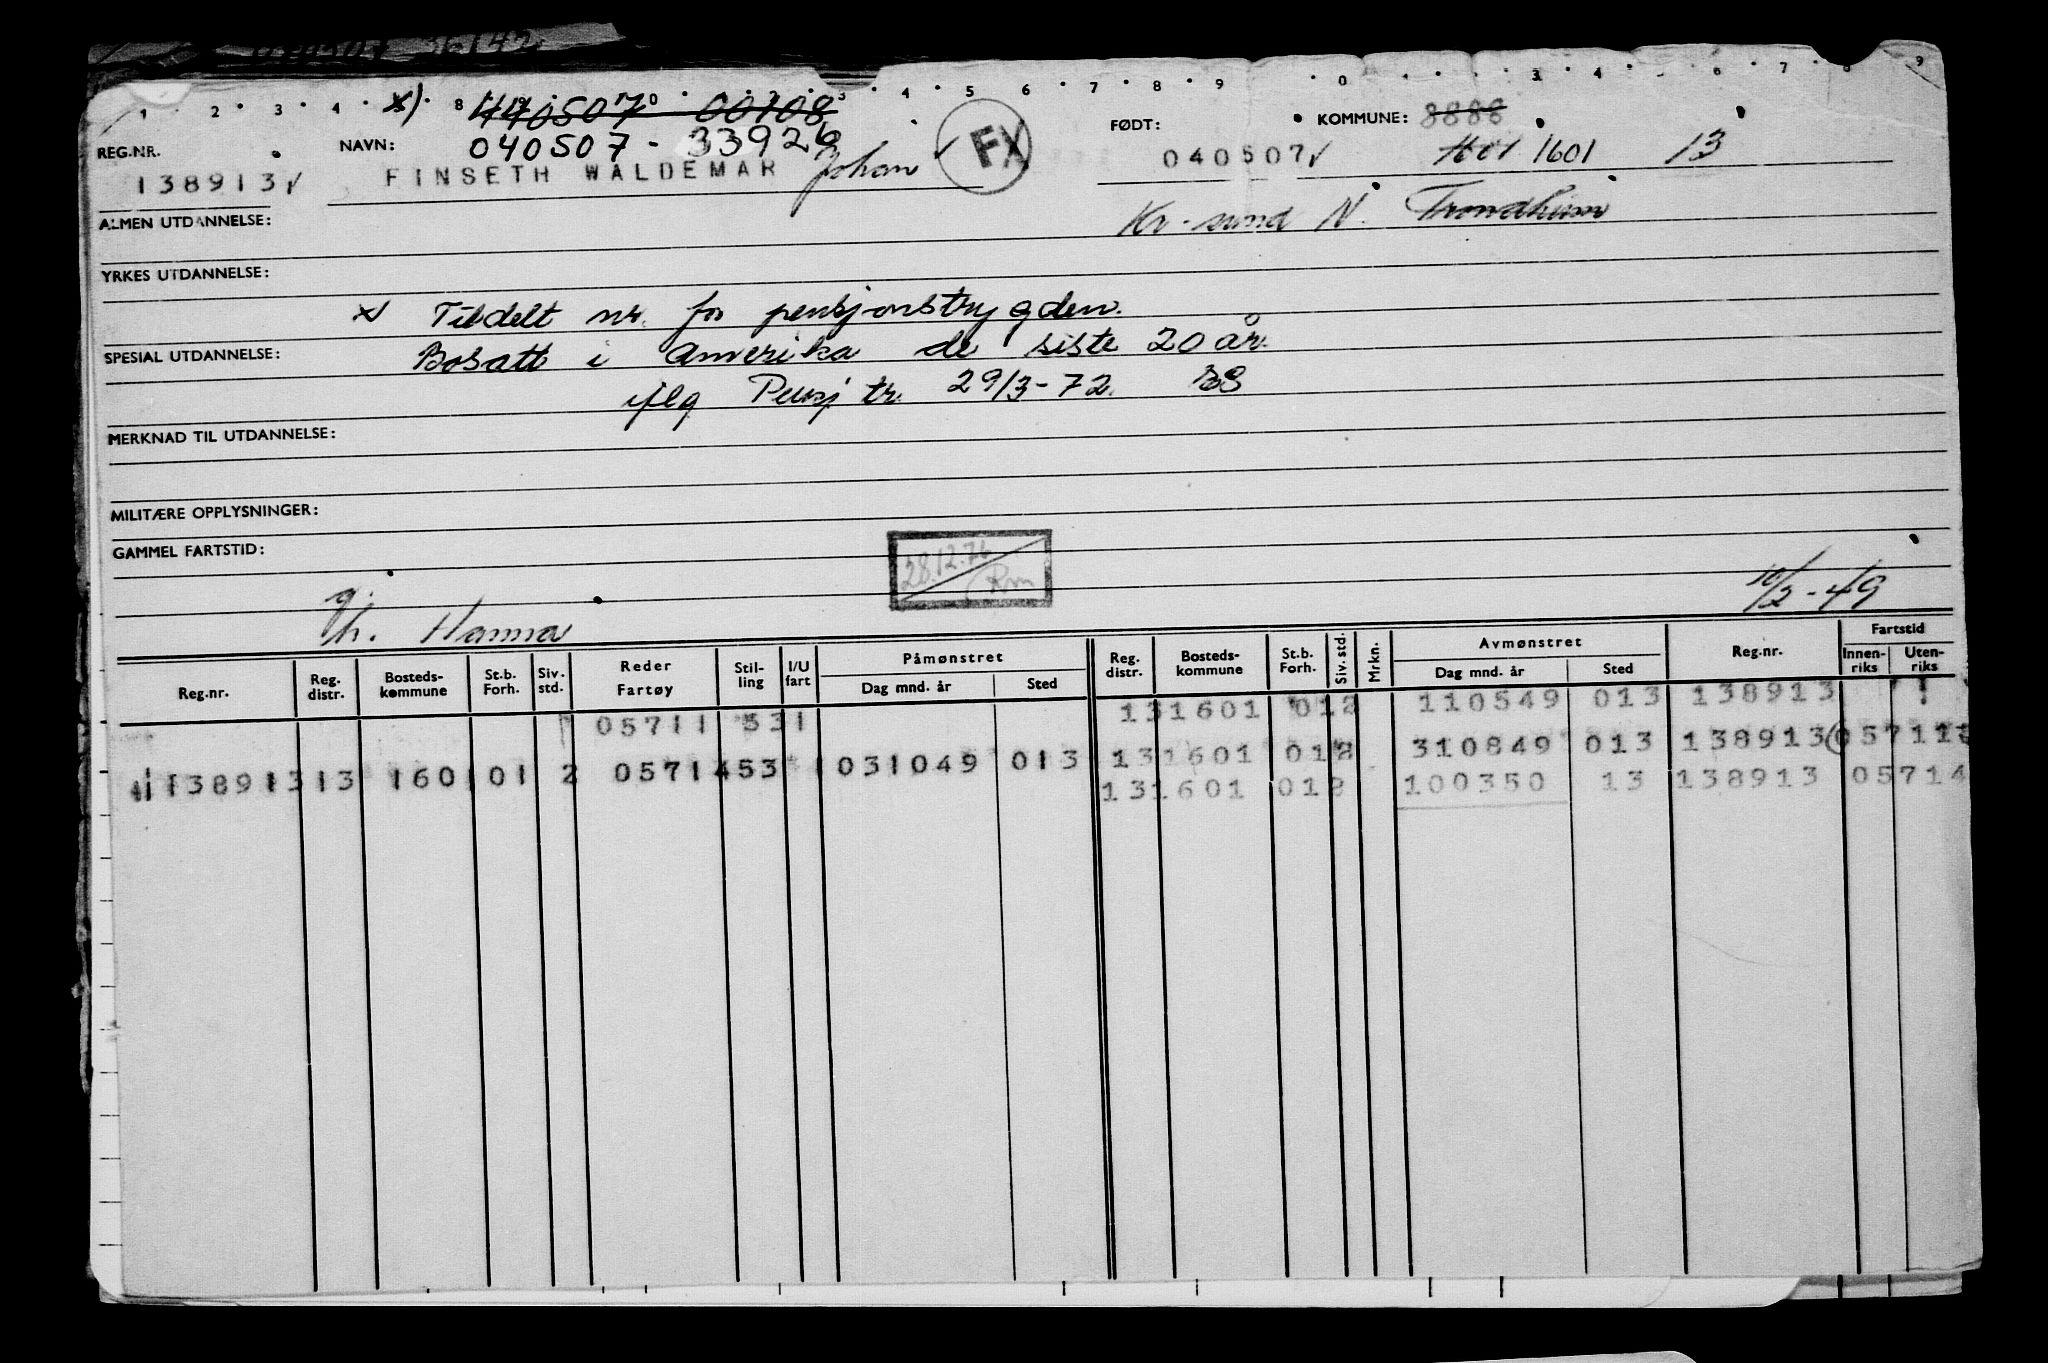 1 2 3 4 8 5 4 5 6 7 8 9 0 3 4 6 7 8 9
x) 440507 00108
REG.NR. NAVN: 040507 - 33926 FX FØDT: KOMMUNE: 8888
138913 FINSETH WALDEMAR Johan 040507 1601 13
ALMEN UTDANNELSE: Kr-sund N. Trondheim
YRKES UTDANNELSE:
x Tildelt nr. for pensjonstrygden.
SPESIAL UTDANNELSE: Bosatt i Amerika de siste 20 år.
iflg Pensj tr. 29/3-72. BS
MERKNAD TIL UTDANNELSE:
MILITÆRE OPPLYSNINGER:
GAMMEL FARTSTID:
28.12.76 Rm
g. h. Hanna 10/2-49
Reg.nr. Reg. distr. Bosteds-kommune St.b. Forh. Siv. std. Reder Fartøy Stil-ling I/U fart Påmønstret Dag mnd. år Sted Reg. distr. Bosteds-kommune St.b. Forh. Siv. std. Mrkn. Avmønstret Dag mnd. år Sted Reg.nr. Fartstid Innen-riks Uten-riks
05711 531 131601 012 110549 013 138913
131601 012 310849 013 138913 05711
138913 13 1601 01 2 05714 53 031049 013
131601 012 100350 13 138913 05714